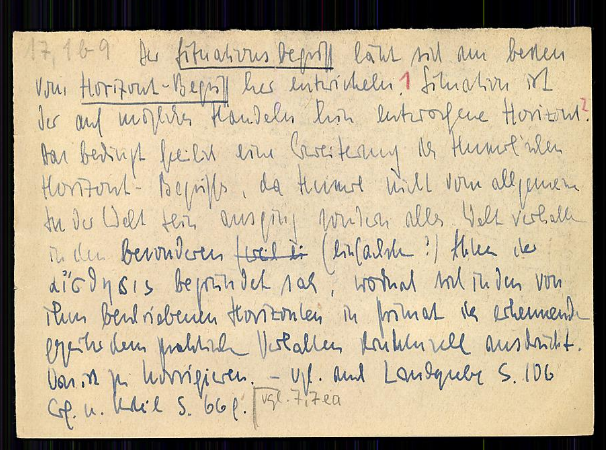 17,16-9 Der Situationsbegriff läßt sich am besten
vom Horizont-Begriff her entwickeln.1 Situation ist
der auf mögliches Handeln hin entworfene Horizont.2
Das bedingt freilich eine Erweiterung des Husserl'schen
Horizont-Begriffs, da Husserl nicht vom allgemeinen
In der Welt sein ausging sondern alles Weltverhalten
in den besonderen (einfachsten?) Akten der
αἴσθησις begründet sah, wodurch sich in den von
ihm beschriebenen Horizonten der Primat des erkennenden
gegenüber dem praktischen Verhalten ausdrückt.
Das ist zu korrigieren. – Vgl. auch Landgrebe S. 106
Erf. u. Urteil S. 66f. vgl. 7,7ea